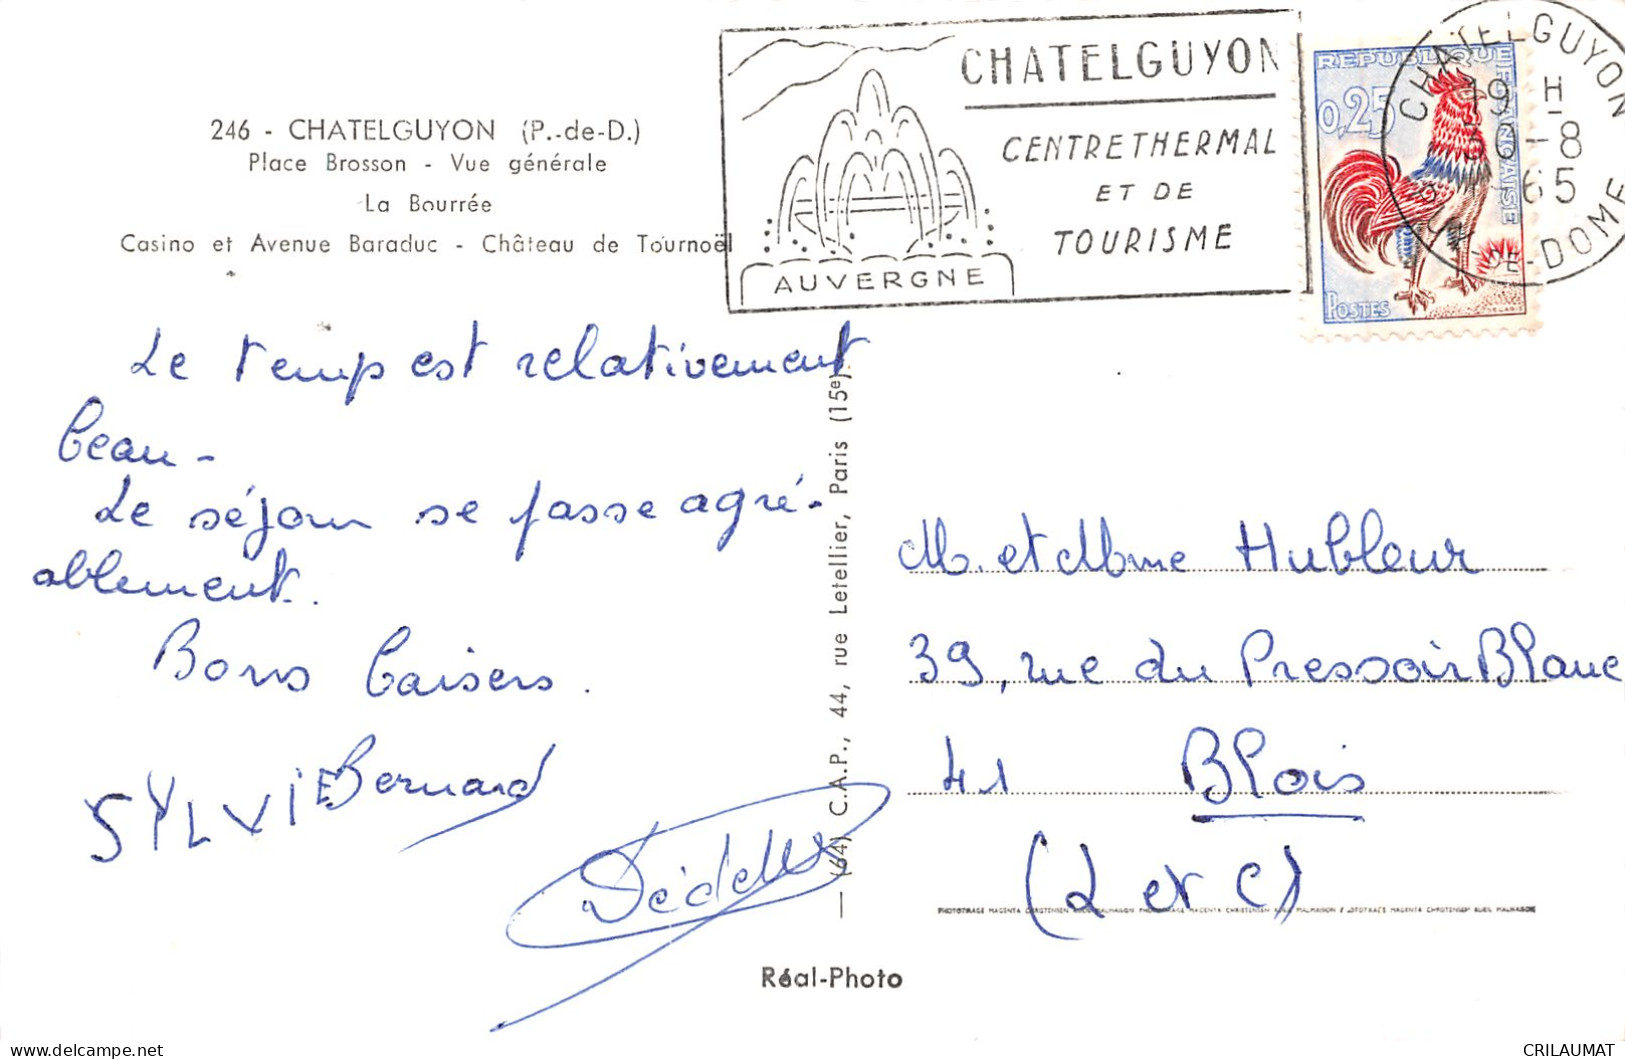 246 - CHATELGUYON (P.-de-D.)
Place Brosson - Vue générale
La Bourrée
Casino et Avenue Baraduc - Château de Tournoël
CHATELGUYON
CENTRE THERMAL
ET DE
TOURISME
AUVERGNE
REPUBLIQUE FRANÇAISE
0,25
POSTES
CHATELGUYON
19 H
30-8
1965
PUY-DE-DOME
Le temps est relativement
beau -
Le séjour se passe agré-
ablement.
Bons baisers.
SYLVIE Bernard
Dédette
— (64) C.A.P., 44, rue Letellier, Paris (15e).
M. et Mme Hubleur
39, rue du Pressoir Blanc
41 Blois
(L et C)
Réal-Photo
delcampe.net
CRILAUMAT